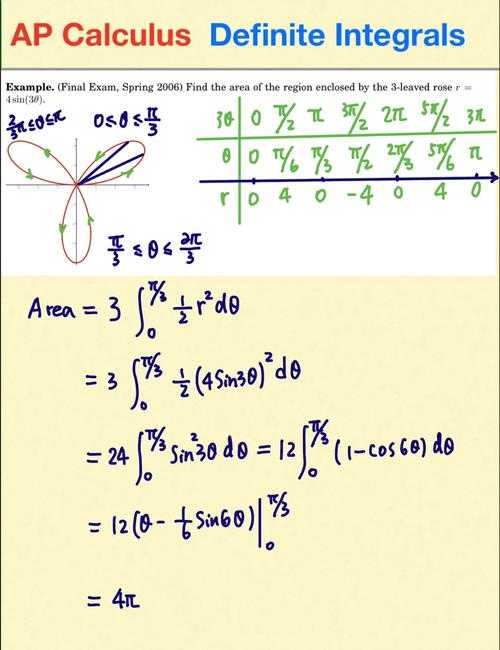 AP Calculus Definite Integrals
Example. (Final Exam, Spring 2006) Find the area of the region enclosed by the 3-leaved rose r =
4 sin(3θ).
2/3 π ≤ θ ≤ π
0 ≤ θ ≤ π/3
π/3 ≤ θ ≤ 2π/3
3θ 0 π/2 π 3π/2 2π 5π/2 3π
θ 0 π/6 π/3 π/2 2π/3 5π/6 π
r 0 4 0 -4 0 4 0
Area = 3 ∫₀^(π/3) 1/2 r² dθ
= 3 ∫₀^(π/3) 1/2 (4 Sin3θ)² dθ
= 24 ∫₀^(π/3) Sin²3θ dθ = 12 ∫₀^(π/3) (1 - cos6θ) dθ
= 12 (θ - 1/6 Sin6θ) |₀^(π/3)
= 4π